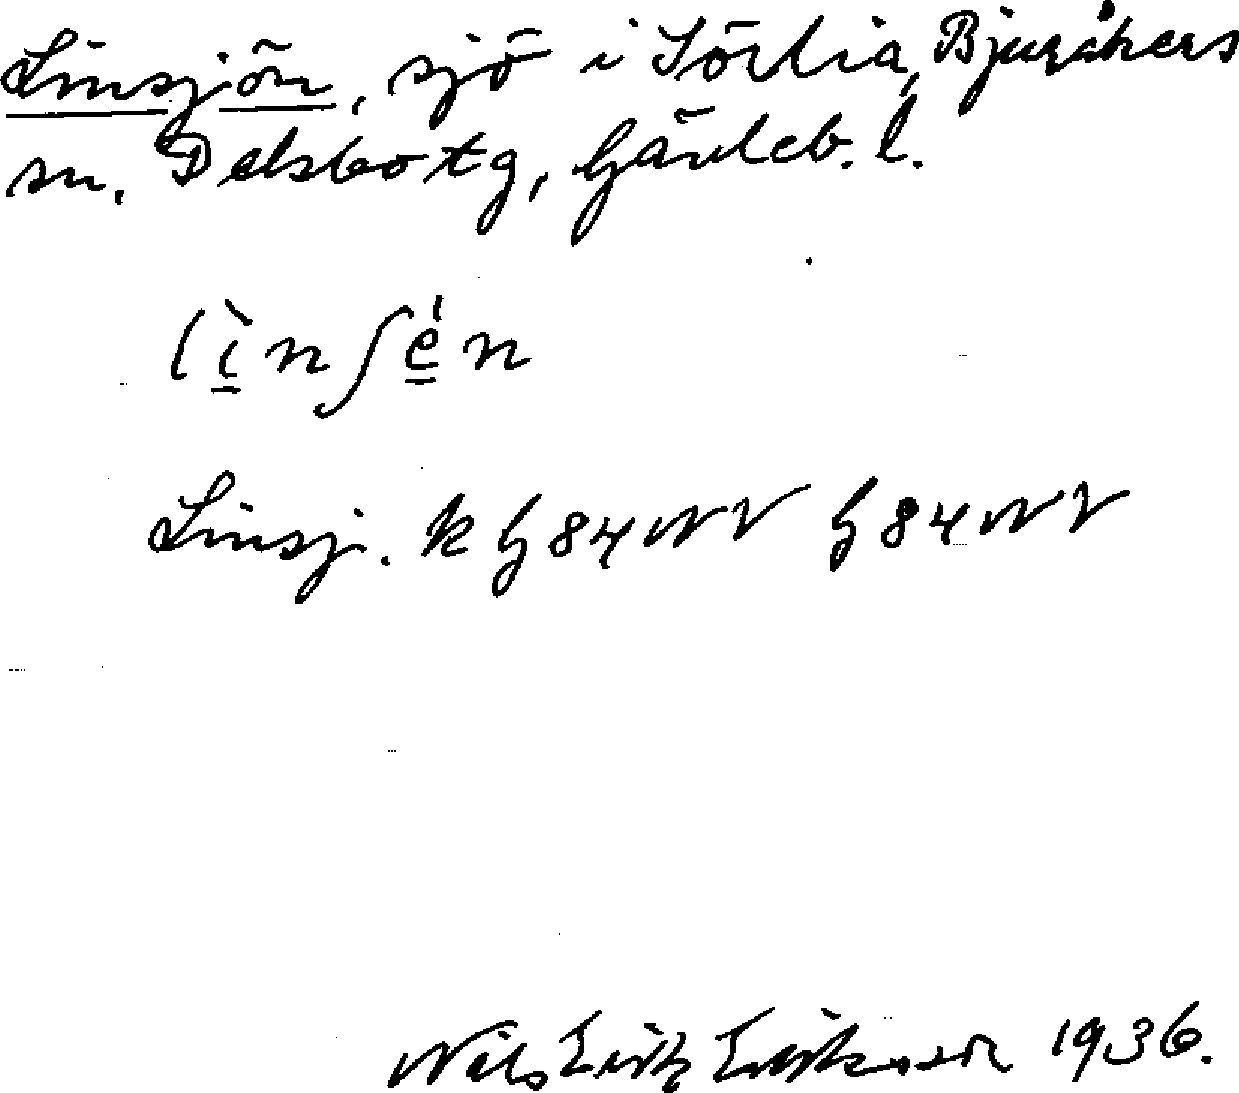 Linsjön, sjö i Sörlia, Bjuråkers
sn. Delsbo tg, Gävleb. l.
lìnʃén
Linsj. k G84NV G84NV
Nils Erik Eriksson 1936.